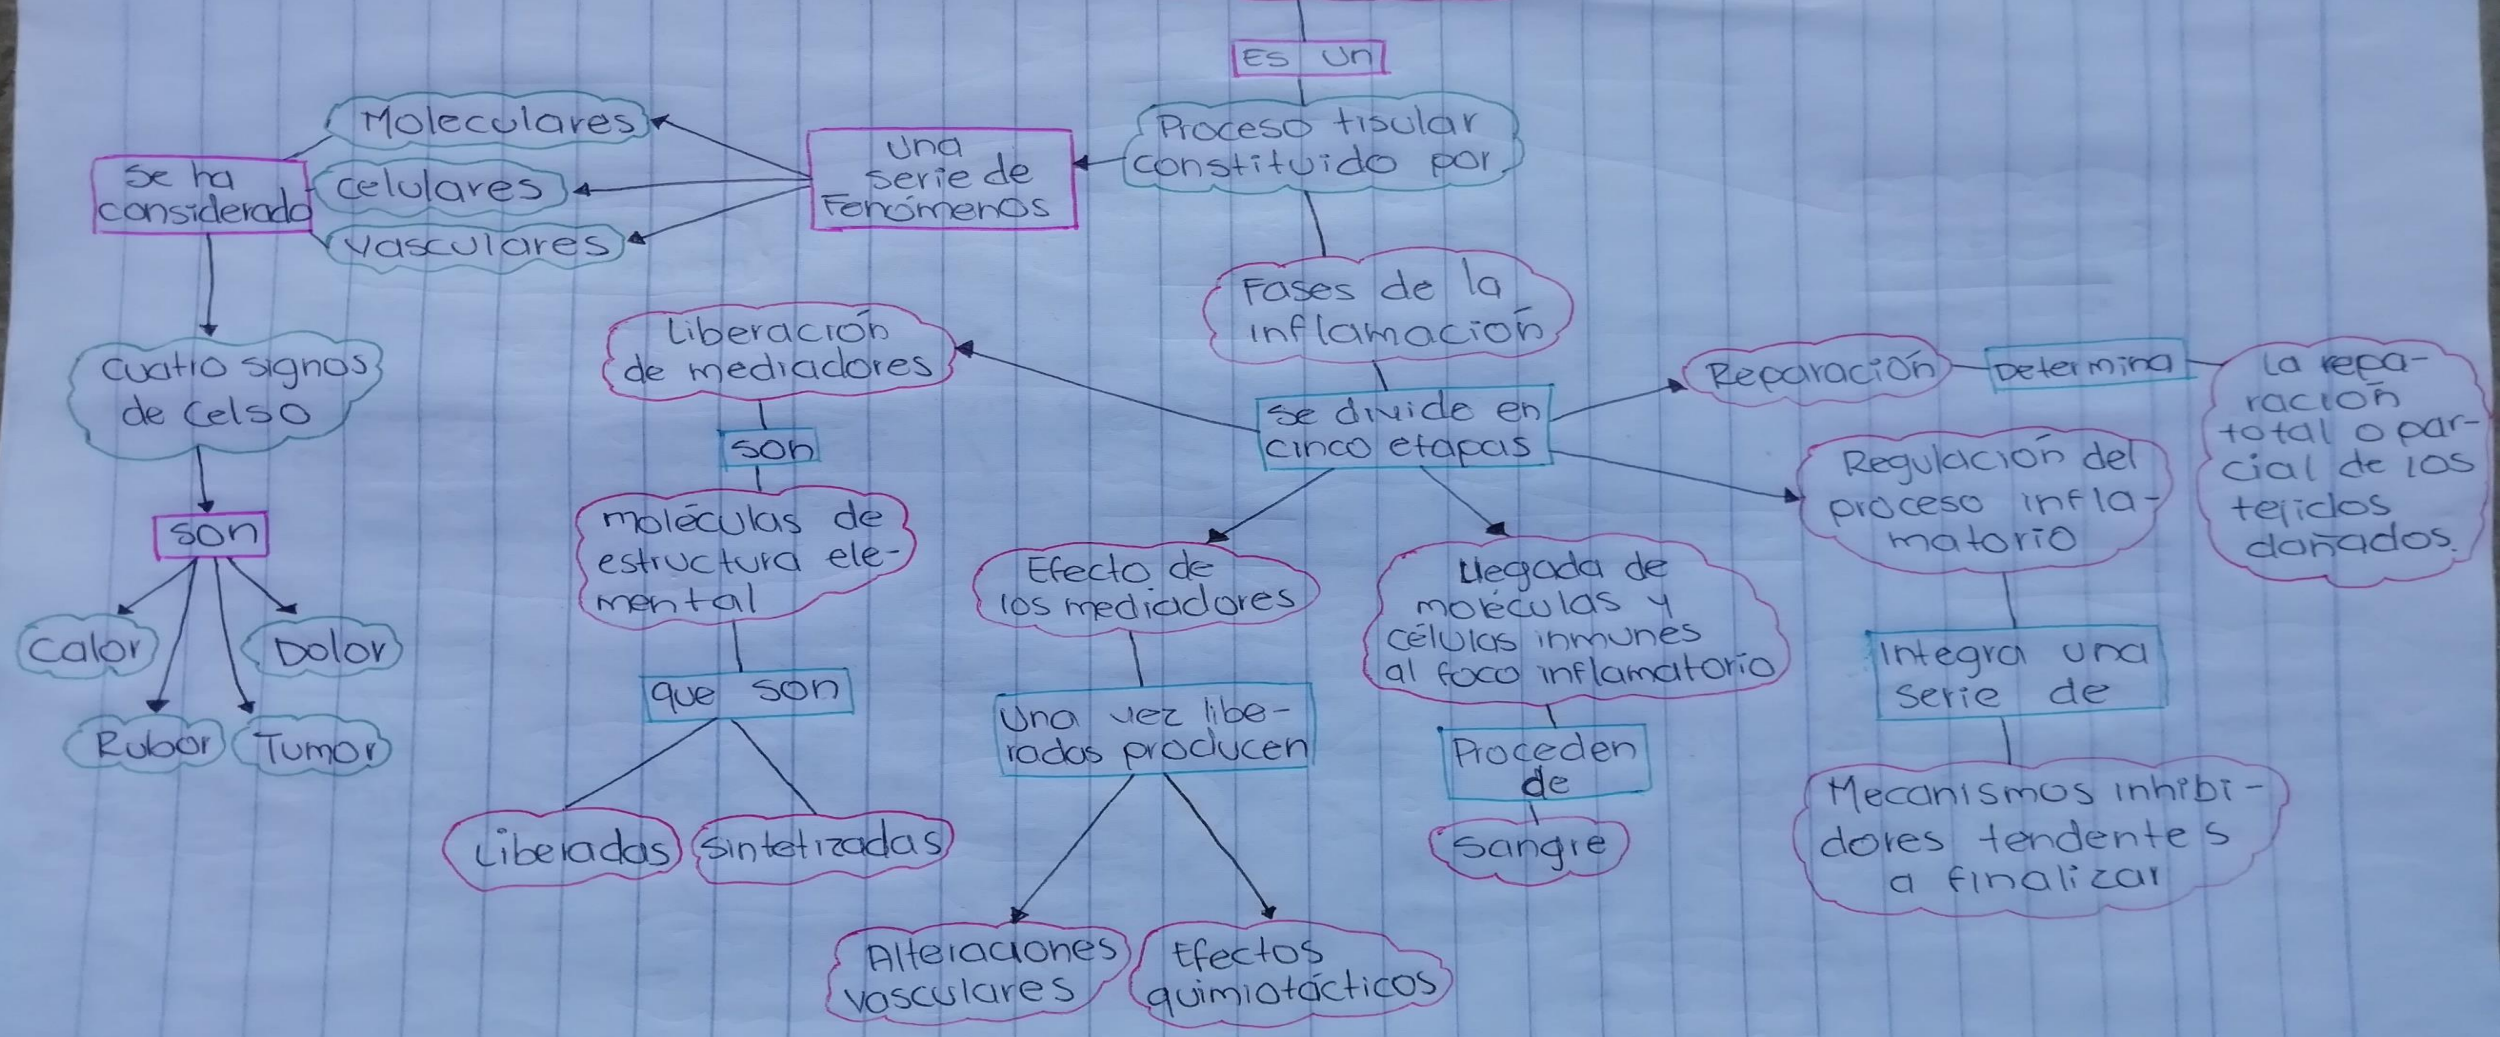 Es un
Proceso tisular
constituido por
una
serie de
Fenómenos
Moleculares
celulares
vasculares
Se ha
considerado
cuatro signos
de Celso
son
Calor
Dolor
Rubor
Tumor
Fases de la
inflamación
Se divide en
cinco etapas
Liberación
de mediadores
son
moléculas de
estructura ele-
mental
que son
Liberadas
Sintetizadas
Efecto de
los mediadores
Una vez libe-
radas producen
Alteraciones
vasculares
Efectos
quimiotácticos
Llegada de
moléculas y
células inmunes
al foco inflamatorio
Proceden
de
Sangre
Regulación del
proceso infla-
matorio
Integra una
serie de
Mecanismos inhibi-
dores tendentes
a finalizar
Reparación
Determina
La repa-
ración
total o par-
cial de los
tejidos
dañados.